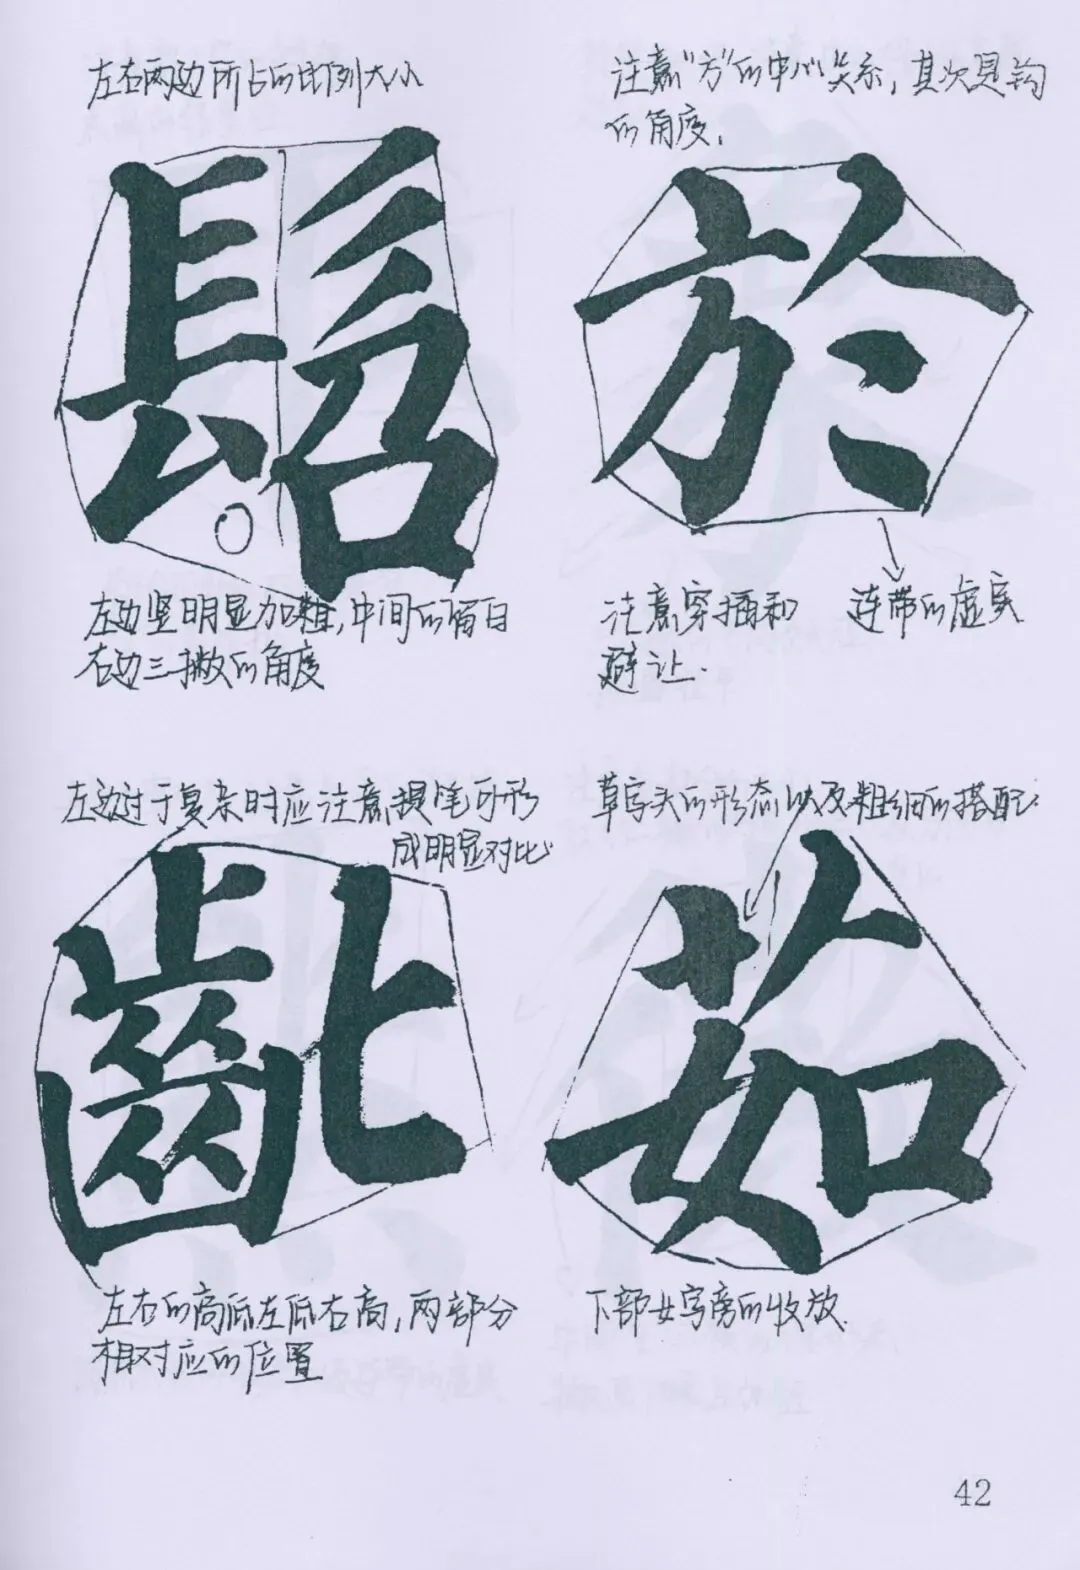 左右两边所占的比例大小
髫
左边竖明显加粗,中间的留白
右边三撇的角度
注意“方”的中心关系,其次是钩
的角度,
於
注意穿插和
避让.
连带的虚实
左边过于复杂时应注意提笔可形
成明显对比
齔
左右的高低左低右高,两部分
相对应的位置
草字头的形态以及粗细的搭配.
茹
下部女字旁的收放.
42